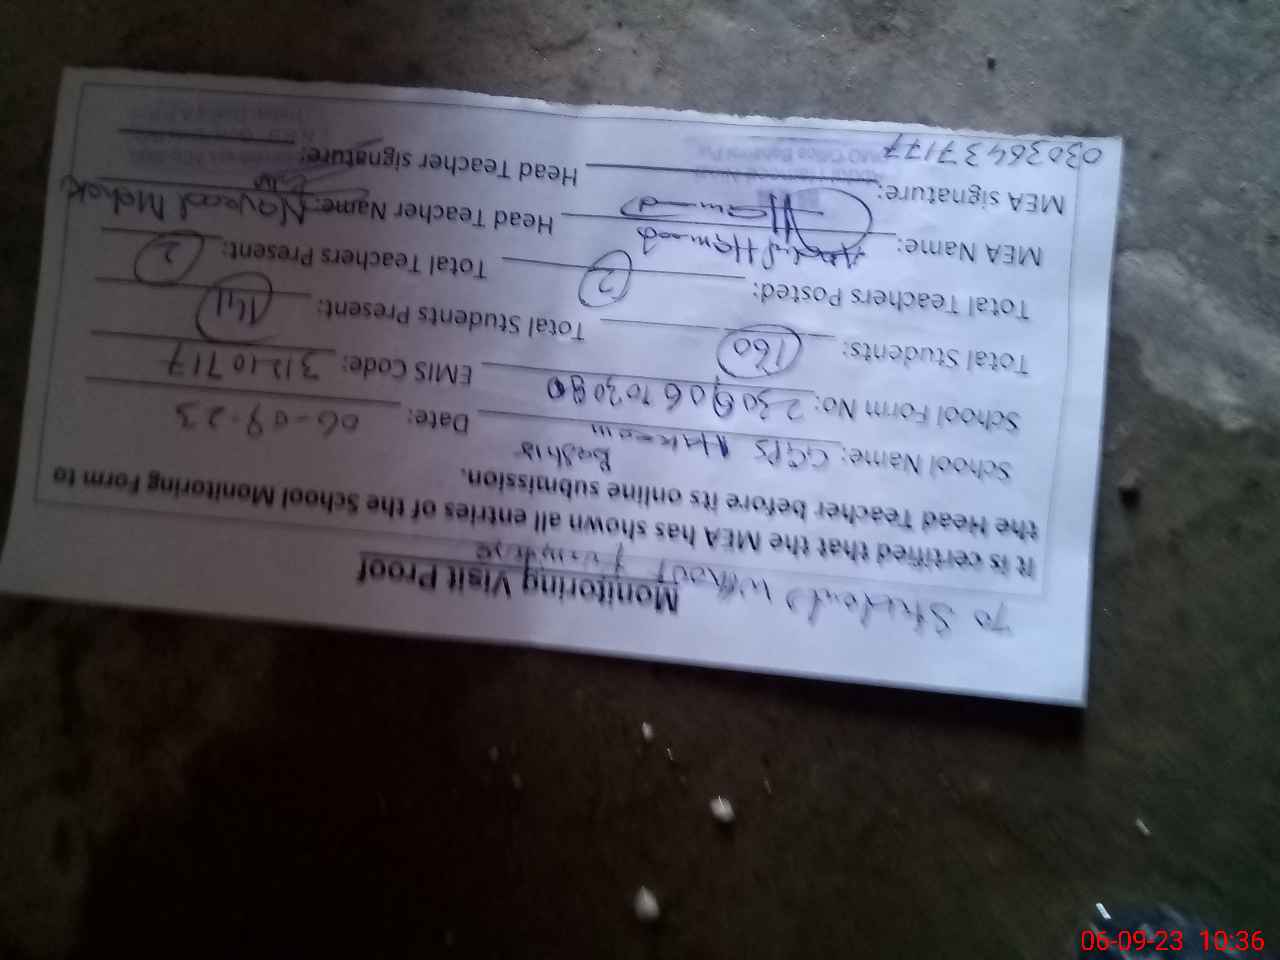 70 Students without furniture
Monitoring Visit Proof
It is certified that the MEA has shown all entries of the School Monitoring Form to
the Head Teacher before its online submission.
School Name: GGPS Hakeem Bashir Date: 06-09-23
School Form No: EMIS Code: 31210717
Total Students: 160 Total Students Present: 141
Total Teachers Posted: 2 Total Teachers Present: 2
MEA Name: Hameed Head Teacher Name: Naveed
MEA signature: Hameed Head Teacher signature:
03036437177
06-09-23 10:36